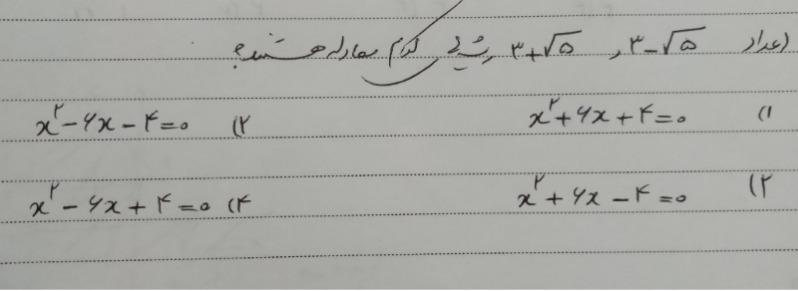 اعداد ۳-√۵ و ۳+√۵ ریشه‌ی کدام معادله هستند؟
۱) x²+۶x+۴=۰ ۲) x²-۶x-۴=۰
۲) x²+۶x-۴=۰ ۴) x²-۶x+۴=۰